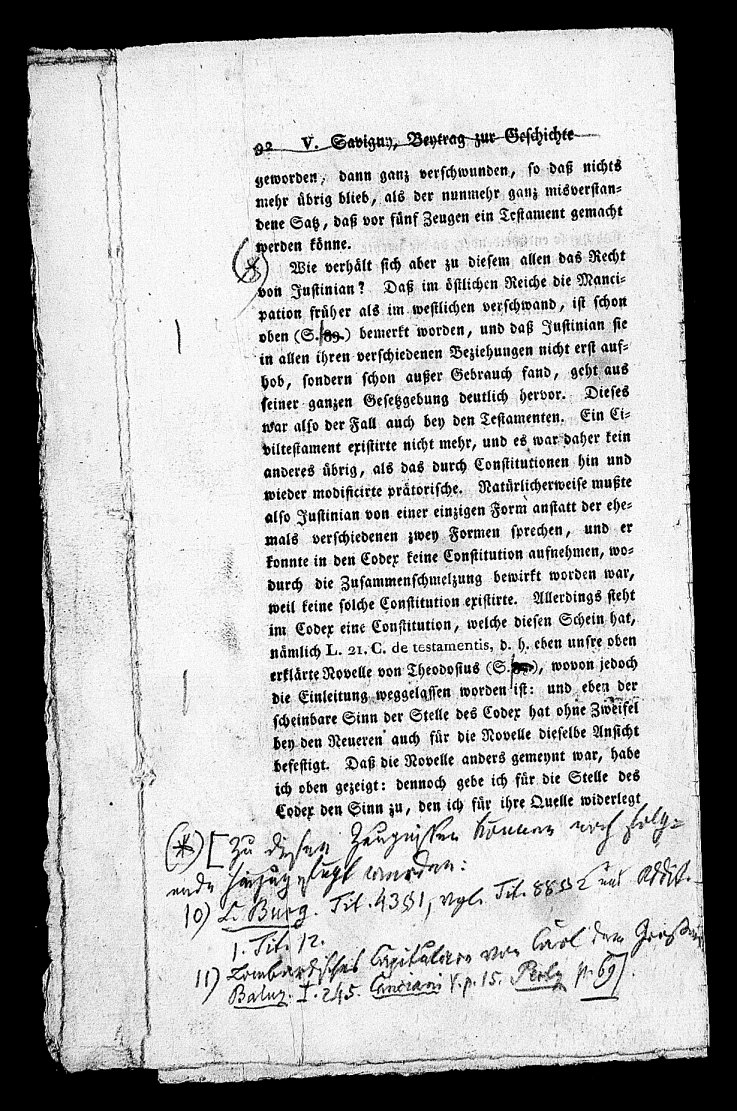 92 V. Savigny, Beytrag zur Geschichte
geworden, dann ganz verschwunden, so daß nichts
mehr übrig blieb, als der nunmehr ganz misverstan-
dene Satz, daß vor fünf Zeugen ein Testament gemacht
werden könne.
(*) Wie verhält sich aber zu diesem allen das Recht
von Justinian? Daß im östlichen Reiche die Manci-
pation früher als im westlichen verschwand, ist schon
oben (S. 89.) bemerkt worden, und daß Justinian sie
in allen ihren verschiedenen Beziehungen nicht erst auf-
hob, sondern schon außer Gebrauch fand, geht aus
seiner ganzen Gesetzgebung deutlich hervor. Dieses
war also der Fall auch bey den Testamenten. Ein Ci-
viltestament existirte nicht mehr, und es war daher kein
anderes übrig, als das durch Constitutionen hin und
wieder modificirte prätorische. Natürlicherweise mußte
also Justinian von einer einzigen Form anstatt der ehe-
mals verschiedenen zwey Formen sprechen, und er
konnte in den Codex keine Constitution aufnehmen, wo-
durch die Zusammenschmelzung bewirkt worden war,
weil keine solche Constitution existirte. Allerdings steht
im Codex eine Constitution, welche diesen Schein hat,
nämlich L. 21. C. de testamentis, d. h. eben unsre oben
erklärte Novelle von Theodosius (S. ), wovon jedoch
die Einleitung weggelassen worden ist: und eben der
scheinbare Sinn der Stelle des Codex hat ohne Zweifel
bey den Neueren auch für die Novelle dieselbe Ansicht
befestigt. Daß die Novelle anders gemeynt war, habe
ich oben gezeigt: dennoch gebe ich für die Stelle des
Codex den Sinn zu, den ich für ihre Quelle widerlegt
(*) [Zu diesen Zeugnissen können noch folg=
ende hinzugefügt werden:
10) L. Burg. Tit. 43 § 1, vgl. Tit. und Addit.
1. Tit. 12.
11) Lombardisches Capitulare von Carl dem Großen
Baluz. I. 245. Canciani V. p. 15. p. 69].